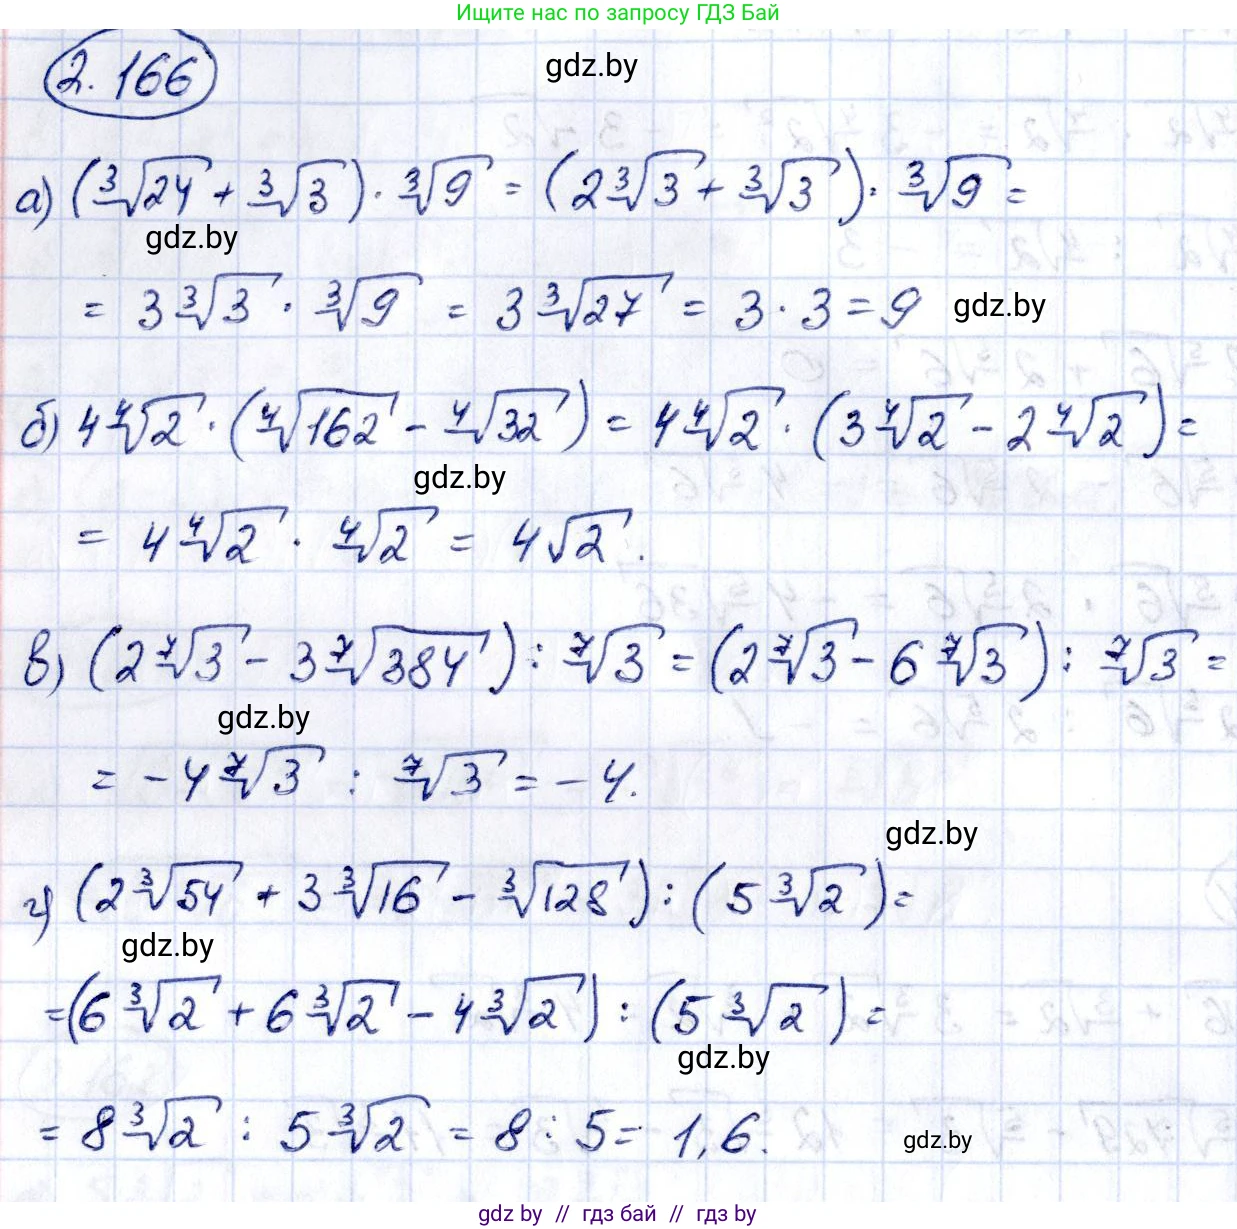 Ищите нас по запросу ГДЗ Бай
2.166
gdz.by
а) (∛24 + ∛3) · ∛9 = (2∛3 + ∛3) · ∛9 =
gdz.by
= 3∛3 · ∛9 = 3∛27 = 3 · 3 = 9
gdz.by
б) 4∜2 · (∜162 - ∜32) = 4∜2 · (3∜2 - 2∜2) =
gdz.by
= 4∜2 · ∜2 = 4√2.
в) (2⁷√3 - 3⁷√384) : ⁷√3 = (2⁷√3 - 6⁷√3) : ⁷√3 =
gdz.by
= -4⁷√3 : ⁷√3 = -4.
gdz.by
г) (2∛54 + 3∛16 - ∛128) : (5∛2) =
gdz.by
=(6∛2 + 6∛2 - 4∛2) : (5∛2) =
gdz.by
= 8∛2 : 5∛2 = 8 : 5 = 1,6.
gdz.by
gdz by // гдз бай // гдз by